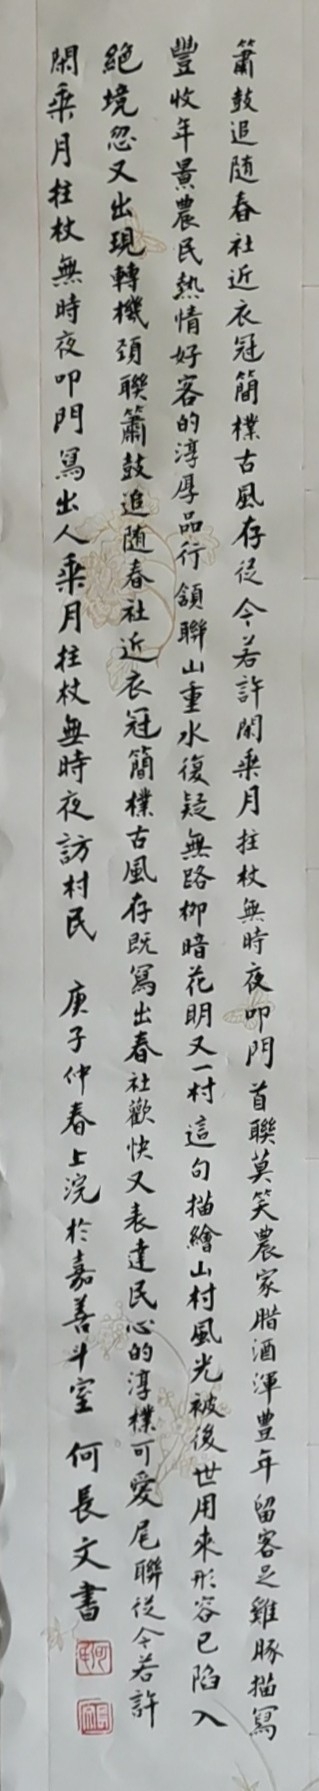 簫鼓追随春社近衣冠簡樸古風存從今若許閑乘月拄杖無時夜叩門首聯莫笑農家腊酒渾豊年留客足雞豚描寫
豐收年景農民熱情好客的淳厚品行頷聯山重水復疑無路柳暗花明又一村這句描繪山村風光被後世用來形容已陷入
絕境忽又出現轉機頚聯簫鼓追随春社近衣冠簡樸古風存既寫出春社歡快又表達民心的淳樸可愛尾聯從今若許
閑乘月拄杖無時夜叩門寫出人乘月拄杖無時夜訪村民 庚子仲春上浣於嘉善斗室何長文書